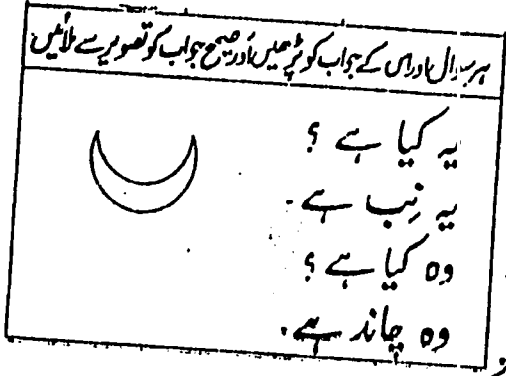 ہر سوال اور اس کے جواب کو پڑھیں اور صحیح جواب کو تصویر سے ملائیں
یہ کیا ہے ؟
یہ نِب ہے۔
وہ کیا ہے ؟
وہ چاند ہے۔